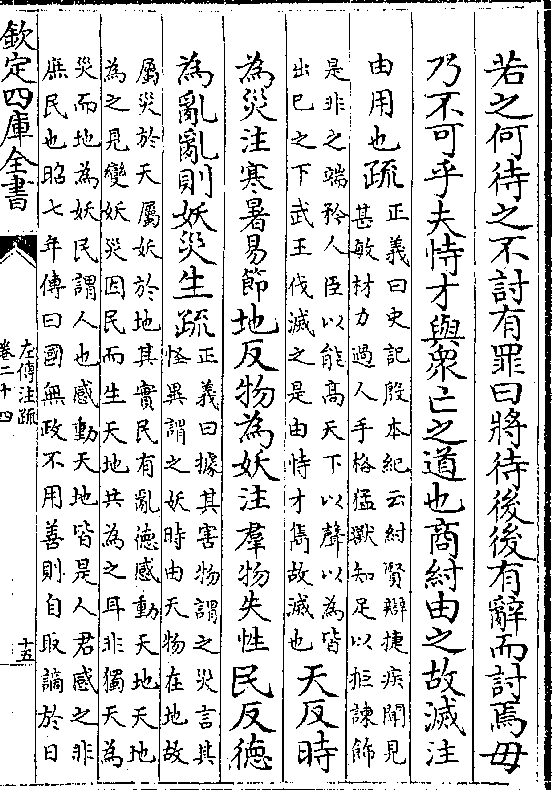 若之何待之不討有罪曰將待後後有辭而討焉毋
乃不可乎夫恃才與衆亡之道也商紂由之故滅注
由用也疏正義曰史記殷本紀云紂賢辯捷疾聞見
甚敏材力過人手格猛獸知足以拒諫飾
是非之端矜人臣以能高天下以聲以為皆
出已之下武王伐滅之是由恃才雋故滅也
天反時
為災注寒暑易節地反物為妖注羣物失性民反德
為亂亂則妖災生疏正義曰據其害物謂之災言其
怪異謂之妖時由天物在地故
屬災於天屬妖於地其實民有亂德感動天地天地
為之見變妖災因民而生天地共為之耳非獨天為
災而地為妖民謂人也感動天地皆是人君感之非
庶民也昭七年傳曰國無政不用善則自取謫於日
欽定四庫全書
左傳注疏
卷二十四
十五